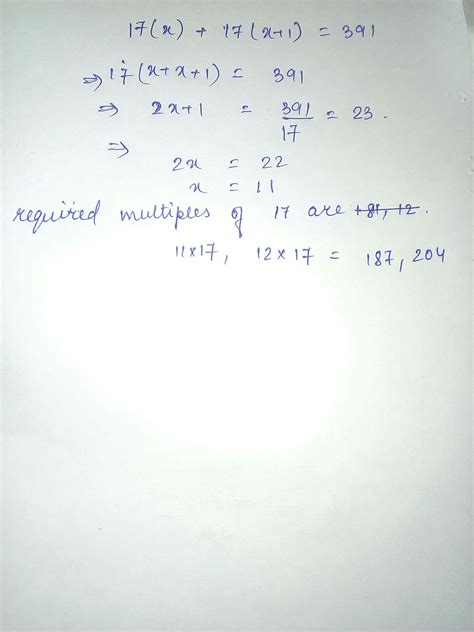 17(x) + 17(x+1) = 391
⇒ 17(x+x+1) = 391
⇒ 2x+1 = 391/17 = 23.
⇒
2x = 22
x = 11
required multiples of 17 are 181, 12.
11×17, 12×17 = 187, 204